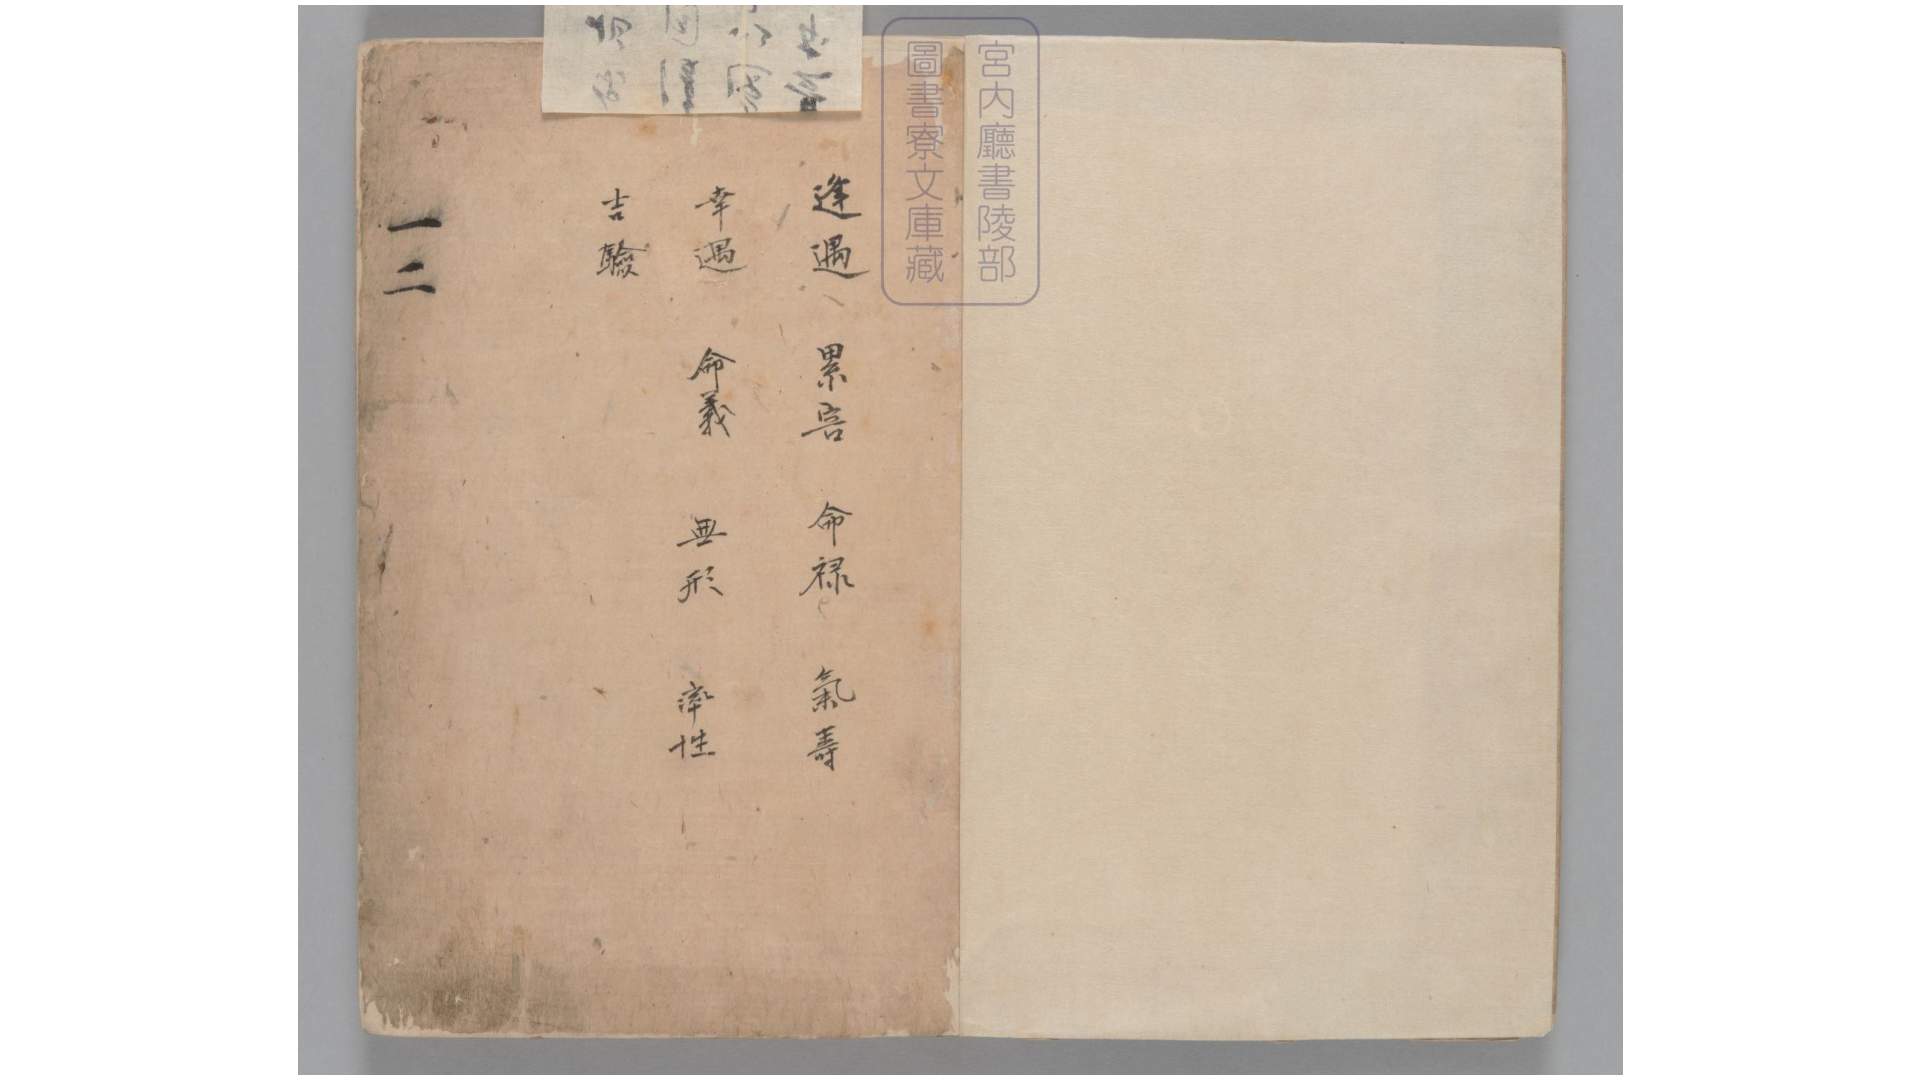 宮内廳書陵部
圖書寮文庫藏
逢遇 累害 命禄 氣壽
幸遇 命義 無形 率性
吉驗
一二